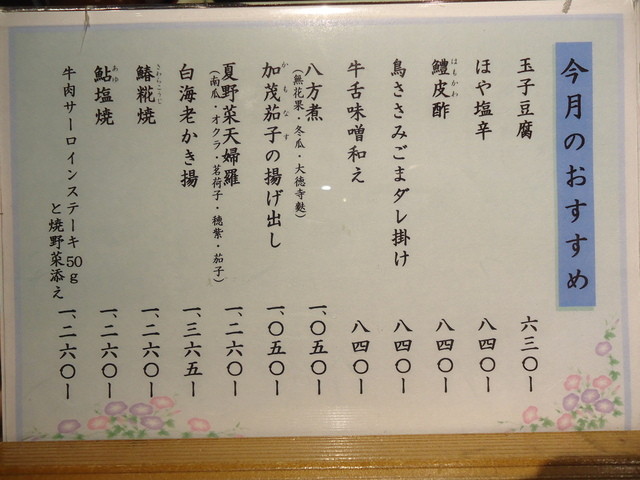 今月のおすすめ
玉子豆腐 六三〇ー
ほや塩辛 八四〇ー
鱧皮酢 八四〇ー
はもかわ
鳥ささみごまダレ掛け 八四〇ー
牛舌味噌和え 八四〇ー
八方煮 一、〇五〇ー
(無花果・冬瓜・大徳寺麩)
加茂茄子の揚げ出し 一、〇五〇ー
かもなす
夏野菜天婦羅 一、二六〇ー
(南瓜・オクラ・茗荷子・穂紫・茄子)
白海老かき揚 一、三六五ー
鰆糀焼 一、二六〇ー
さわらこうじ
鮎塩焼 一、二六〇ー
あゆ
牛肉サーロインステーキ50g
と焼野菜添え 一、二六〇ー